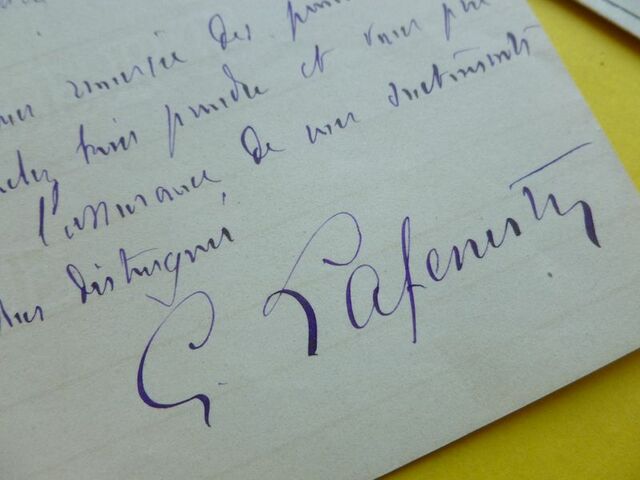 remercie des
bien prendre et vous
l'assurance de mes sentiments
distingués
G. Lafenestre